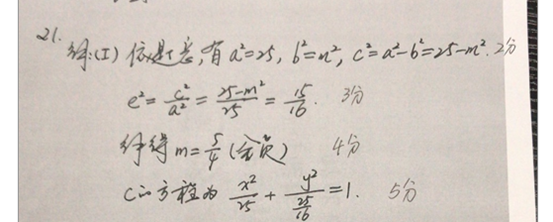 21.
解:(I) 依题意,有 a²=25, b²=m², c²=a²-b²=25-m². 2分
e²= c²/a² = 25-m²/25 = 15/16. 3分
解得 m= 5/4 (舍负) 4分
C的方程为 x²/25 + y²/(25/16) =1. 5分